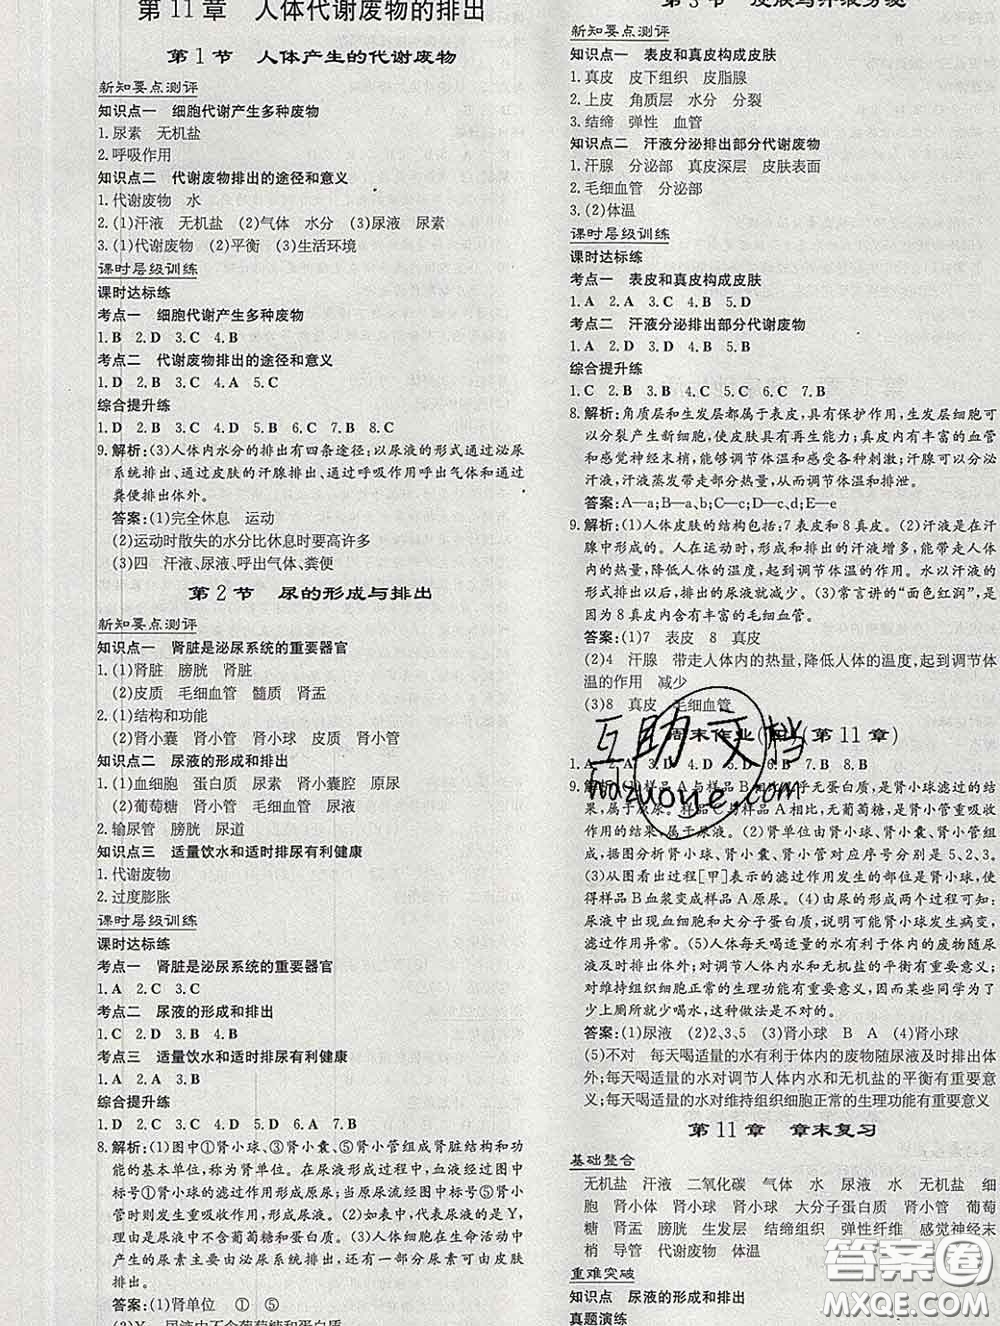 第11章　人体代谢废物的排出
第1节　人体产生的代谢废物
新知要点测评
知识点一　细胞代谢产生多种废物
1.尿素　无机盐
2.呼吸作用
知识点二　代谢废物排出的途径和意义
1.代谢废物　水
2.(1)汗液　无机盐　(2)气体　水分　(3)尿液　尿素
3.(1)代谢废物　(2)平衡　(3)生活环境
课时层级训练
课时达标练
考点一　细胞代谢产生多种废物
1.B　2.D　3.C　4.B
考点二　代谢废物排出的途径和意义
1.D　2.B　3.C　4.A　5.C
综合提升练
1.D　2.B　3.C　4.C　5.D　6.C　7.B　8.C
9.解析:(3)人体内水分的排出有四条途径:以尿液的形式通过泌尿
系统排出、通过皮肤的汗腺排出、通过呼吸作用呼出气体和通过
粪便排出体外。
答案:(1)完全休息　运动
(2)运动时散失的水分比休息时要高许多
(3)四　汗液、尿液、呼出气体、粪便
第2节　尿的形成与排出
新知要点测评
知识点一　肾脏是泌尿系统的重要器官
1.(1)肾脏　膀胱　肾脏
(2)皮质　毛细血管　髓质　肾盂
2.(1)结构和功能
(2)肾小囊　肾小管　肾小球　皮质　肾小管
知识点二　尿液的形成和排出
1.(1)血细胞　蛋白质　尿素　肾小囊腔　原尿
(2)葡萄糖　肾小管　毛细血管　尿液
2.输尿管　膀胱　尿道
知识点三　适量饮水和适时排尿有利健康
1.代谢废物
2.过度膨胀
课时层级训练
课时达标练
考点一　肾脏是泌尿系统的重要器官
1.A　2.C　3.C
考点二　尿液的形成和排出
1.C　2.D　3.B　4.B
考点三　适量饮水和适时排尿有利健康
1.D　2.A　3.B
综合提升练
1.C　2.B　3.C　4.D　5.D　6.A　7.B
8.解析:(1)图中①肾小球、③肾小囊、⑤肾小管组成肾脏结构和功
能的基本单位,称为肾单位。在尿液形成过程中,血液经过图中
标号①肾小球的滤过作用形成原尿;当原尿流经图中标号⑤肾小
管时发生重吸收作用,形成尿液。(2)如表中,代表尿液的是Y,
理由是尿液中不含葡萄糖和蛋白质。(3)人体细胞在生命活动中
产生的尿素主要由泌尿系统排出,还有一部分尿素可由皮肤
排出。
答案:(1)肾单位　①　⑤
(2)Y　尿液中不含葡萄糖和蛋白质
第3节　皮肤与汗液分泌
新知要点测评
知识点一　表皮和真皮构成皮肤
1.真皮　皮下组织　皮脂腺
2.上皮　角质层　水分　分裂
3.结缔　弹性　血管
知识点二　汗液分泌排出部分代谢废物
1.汗腺　分泌部　真皮深层　皮肤表面
2.毛细血管　分泌部
3.(2)体温
课时层级训练
课时达标练
考点一　表皮和真皮构成皮肤
1.A　2.A　3.C　4.B　5.D
考点二　汗液分泌排出部分代谢废物
1.B　2.D　3.D　4.A　5.B
综合提升练
1.C　2.B　3.B　4.B　5.C　6.C　7.B
8.解析:角质层和生发层都属于表皮,具有保护作用,生发层细胞可
以分裂产生新细胞,使皮肤具有再生能力;真皮内有丰富的血管
和感觉神经末梢,能够调节体温和感受各种刺激;汗腺可以分泌
汗液,汗液蒸发带走部分热量,从而调节体温和排泄。
答案:A—a;B—a、b;C—c;D—c、d;E—e
9.解析:(1)人体皮肤的结构包括:7表皮和8真皮。(2)汗液是在汗
腺中形成的。人在运动时,形成和排出的汗液增多,能带走人体
内的热量,降低人体的温度,起到调节体温的作用。水以汗液的
形式排出以后,排出的尿液就减少。(3)常言讲的“面色红润”,是
因为8真皮内含有丰富的毛细血管。
答案:(1)7　表皮　8　真皮
(2)4　汗腺　带走人体内的热量,降低人体的温度,起到调节体
温的作用　减少
(3)8　真皮　毛细血管
周末作业(四)(第11章)
1.A　2.B　3.D　4.D　5.D　6.D　7.B　8.B
9.解析:(1)样品A与样品B相比几乎无蛋白质,是肾小球滤过的结
果,属于原尿。样品C与样品A相比,无葡萄糖,是肾小管重吸收
作用的结果,属于尿液。(2)肾单位由肾小球、肾小囊、肾小管组
成,据图分析肾小球、肾小囊、肾小管对应序号分别是5、2、3。
(3)从图看出过程[甲]表示的滤过作用发生的部位是肾小球,使
得样品B血浆变成样品A原尿。(4)由尿的形成两个过程可知:
尿液中出现血细胞和大分子蛋白质,说明可能肾小球发生病变,
滤过作用异常。(5)人体每天喝适量的水有利于体内的废物随尿
液及时排出体外;对调节人体内水和无机盐的平衡有重要意义;
对维持组织细胞正常的生理功能有重要意义,因而某些同学为了
少上厕所就少喝水,这种做法是不对的。
答案:(1)尿液　(2)2、3、5　(3)肾小球　B　A　(4)肾小球
(5)不对　每天喝适量的水有利于体内的废物随尿液及时排出体
外;每天喝适量的水对调节人体内水和无机盐的平衡有重要意
义;每天喝适量的水对维持组织细胞正常的生理功能有重要意义
第11章　章末复习
基础整合
无机盐　汗液　二氧化碳　气体　水　尿液　水　无机盐　细
胞　肾小体　肾小球　肾小球　大分子蛋白质　肾小管　葡萄
糖　肾盂　膀胱　生发层　结缔组织　弹性纤维　感觉神经末
梢　导管　代谢废物　体温
重难突破
知识点　尿液的形成和排出
真题演练
互助文档
hdzuoye.com
答案圈
MXQE.COM